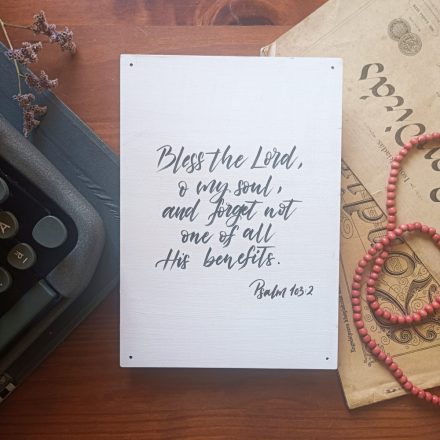 Bless the Lord,
o my soul,
and forget not
one of all
His benefits.
Psalm 103:2
A